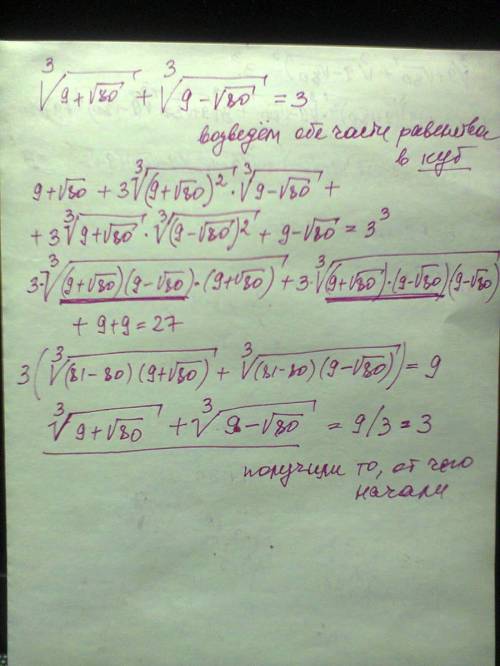 ∛(9+√80) + ∛(9−√80) = 3
возведём обе части равенства
в куб
9+√80 + 3∛(9+√80)² · ∛(9−√80) +
+ 3∛(9+√80) · ∛(9−√80)² + 9−√80 = 3³
3·∛((9+√80)(9−√80)·(9+√80)) + 3·∛((9+√80)·(9−√80)(9−√80))
+ 9+9=27
3(∛((81−80)(9+√80)) + ∛((81−80)(9−√80))) = 9
∛(9+√80) + ∛(9−√80) = 9/3 = 3
получили то, от чего
начали